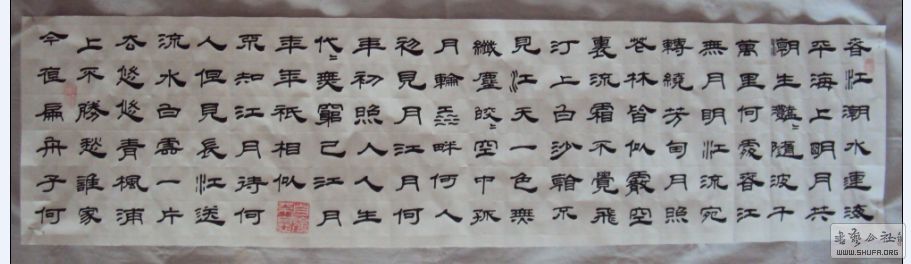 春江潮水連海
平海上明月共
潮生灩〻隨波千
萬里何處春江
無月明江流宛
轉繞芳甸月照
花林皆似霰空
裏流霜不覺飛
汀上白沙看不
見江天一色無
纖塵皎〻空中孤
月輪江畔何人
初見月江月何
年初照人人生
代〻無窮已江月
年年祇相似
不知江月待何
人但見長江送
流水白雲一片
去悠悠青楓浦
上不勝愁誰家
今夜扁舟子何
书法公社
WWW.SHUFA.ORG